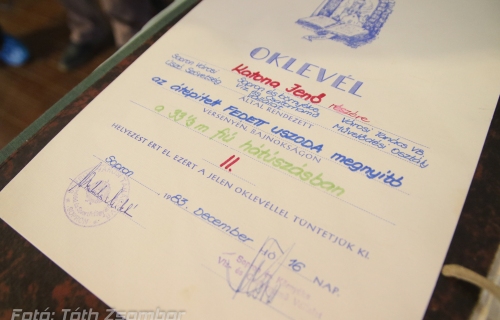 OKLEVÉL
Katona Jenő részére
Sopron Városi
Úszó Szövetség
Sopron és környéke
Városi Tanács V.B.
Művelődési Osztály
ÁLTAL RENDEZETT
az átépített FEDETT USZODA megnyitó
VERSENYEN, BAJNOKSÁGON
a 33⅓ m fiú hátúszásban
II.
HELYEZÉST ÉRT EL EZÉRT A JELEN OKLEVÉLLEL TÜNTETJÜK KI.
Sopron 1983. December 16 NAP.
Fotó: Tóth Zsombor